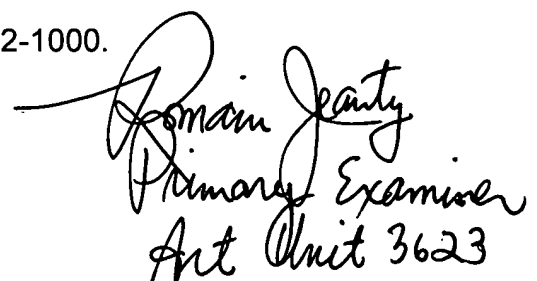 2-1000.
Romain Jeanty
Primary Examiner
Art Unit 3623